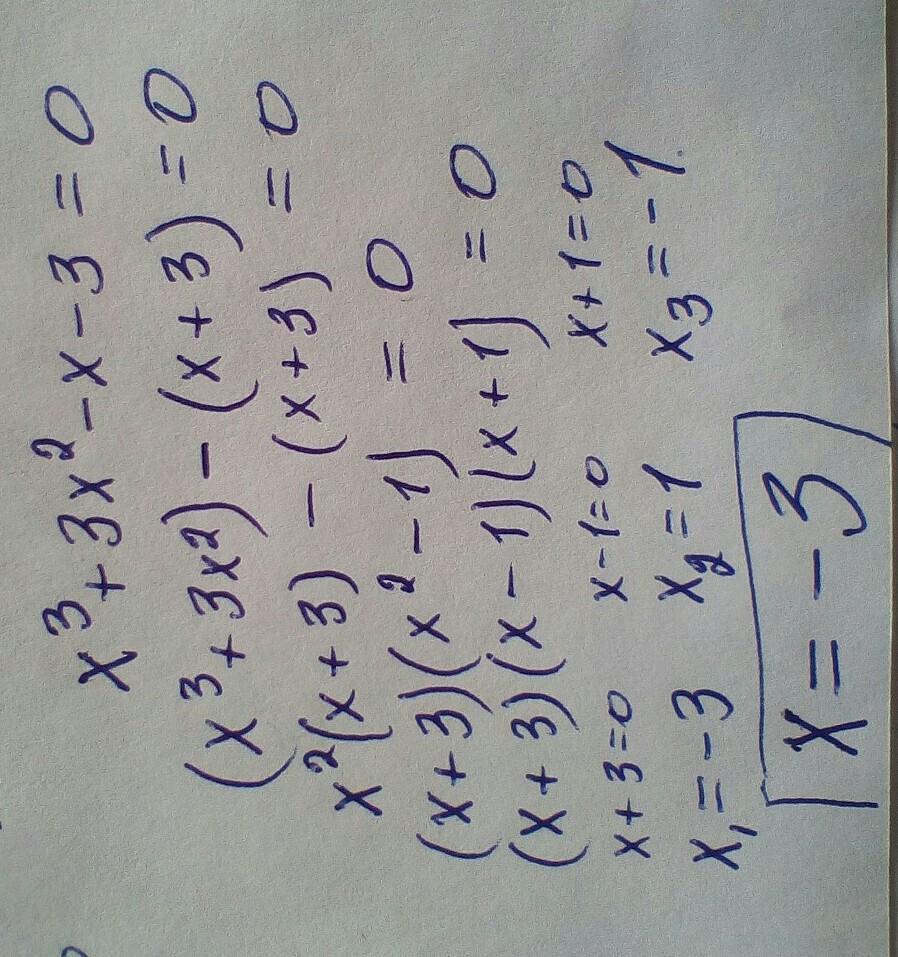 x³+3x²-x-3=0
(x³+3x²)-(x+3)=0
x²(x+3)-(x+3)=0
(x+3)(x²-1)=0
(x+3)(x-1)(x+1)=0
x+3=0 x-1=0 x+1=0
x₁=-3 x₂=1 x₃=-1.
x=-3